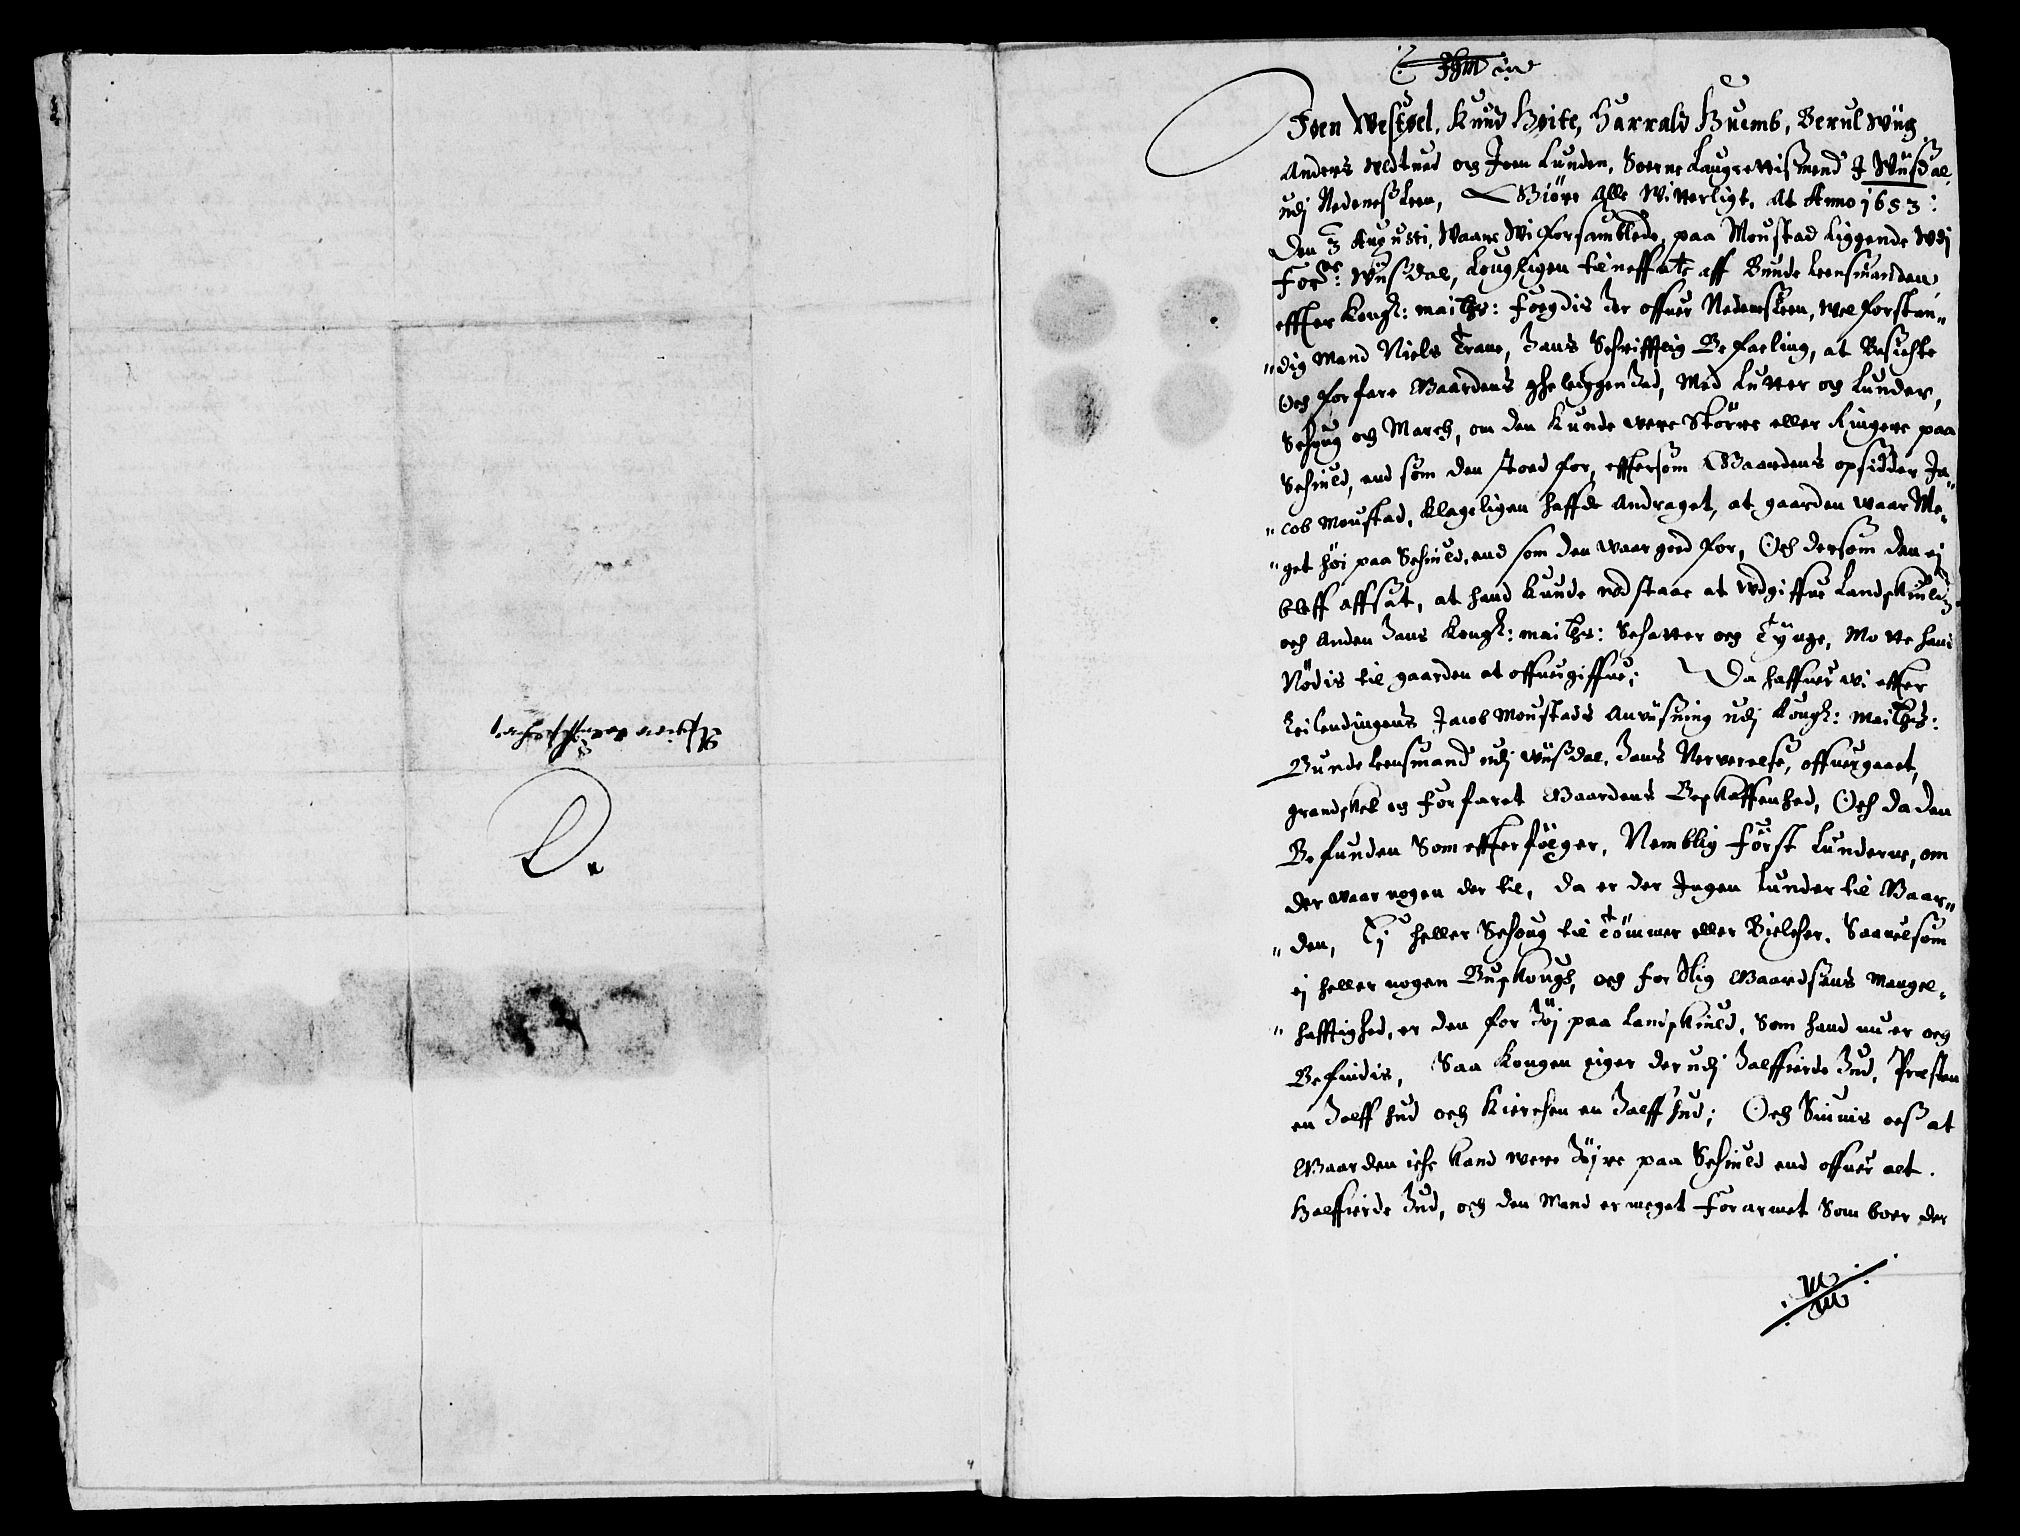 D.
Joen Westøel, Knud Høite, Harrald Humb, Berul Wüg
Anders og Joen Lunden, Sorne Laugrettismend J Wüßdal
udj Nedeneß Leen, Giöre Alle Witterligt, At Anno 1653:
Den 3 Augusti, Waare Wi forsamblede, paa Moustad Liggende Wdj
For: Wüßdal, Lougligen til neffnte aff Bunde Leensmanden,
effter Kongl: maitts: Foegdis der offuer Nedeneßleen, Wel forstan-
dig Mand Niels Trane, Hans Schrifftlig Befaeling, at Besichte
Och forfare Gaardens gheleiggenhed, Med Lutter og Lunder,
Schoug og March, om den Kunde were Större eller Ringere paa
Schiuld, end som den stoed for, effttersom Gaardens opsidder Ja-
cob Moustad, Klageligen haffde Andraget, at gaarden waar Me-
get höi paa Schiuld, end som den waar goed for, Och dersom den ej
bleff affsat, at hand Kunde udstaae at Wdgiffue Landskiuld
och Anden Hans Kongl: maitts: Schatter og Tynge, Motte hand
Nödis til gaarden at offuergiffue; Da haffuer wi effter
Leilendingens Jacob Moustads Anvüsning udj Kongl: Maitts:
Bunde Leensmand udj Wüßdal, Hans Nerverelse, offuergaaet,
grandsket og Forfaret Gaardens Beskaffenhed, Och da den
Befunden Som effterfölger, Nemblig Först Lunderne, om
der waar nogen der til, da er der Ingen Lunder til Gaar-
den, Ej heller Schoug til Tömmer eller Bielcher, Saauelsom
ej heller nogen Buskougs, og for Slig Gaardsens Mangel-
hafftighed, er den for Höj paa Landskiuld, Som hand nu er og
Befindis, Saa Kongen eiger der udj Halffierde Hud, Præsten
en Halff hud och Kierchen en Halff hud; Och Siunis oeß at
Gaarden iche kand were Höjre paa Schiuld end offuer alt
Halffierde Hud, och den Mand er meget Forarmet Som boer der